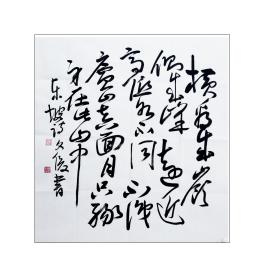 横看成岭
侧成峰远近
高低各不同不识
庐山真面目只缘
身在此山中
东坡诗文俊书